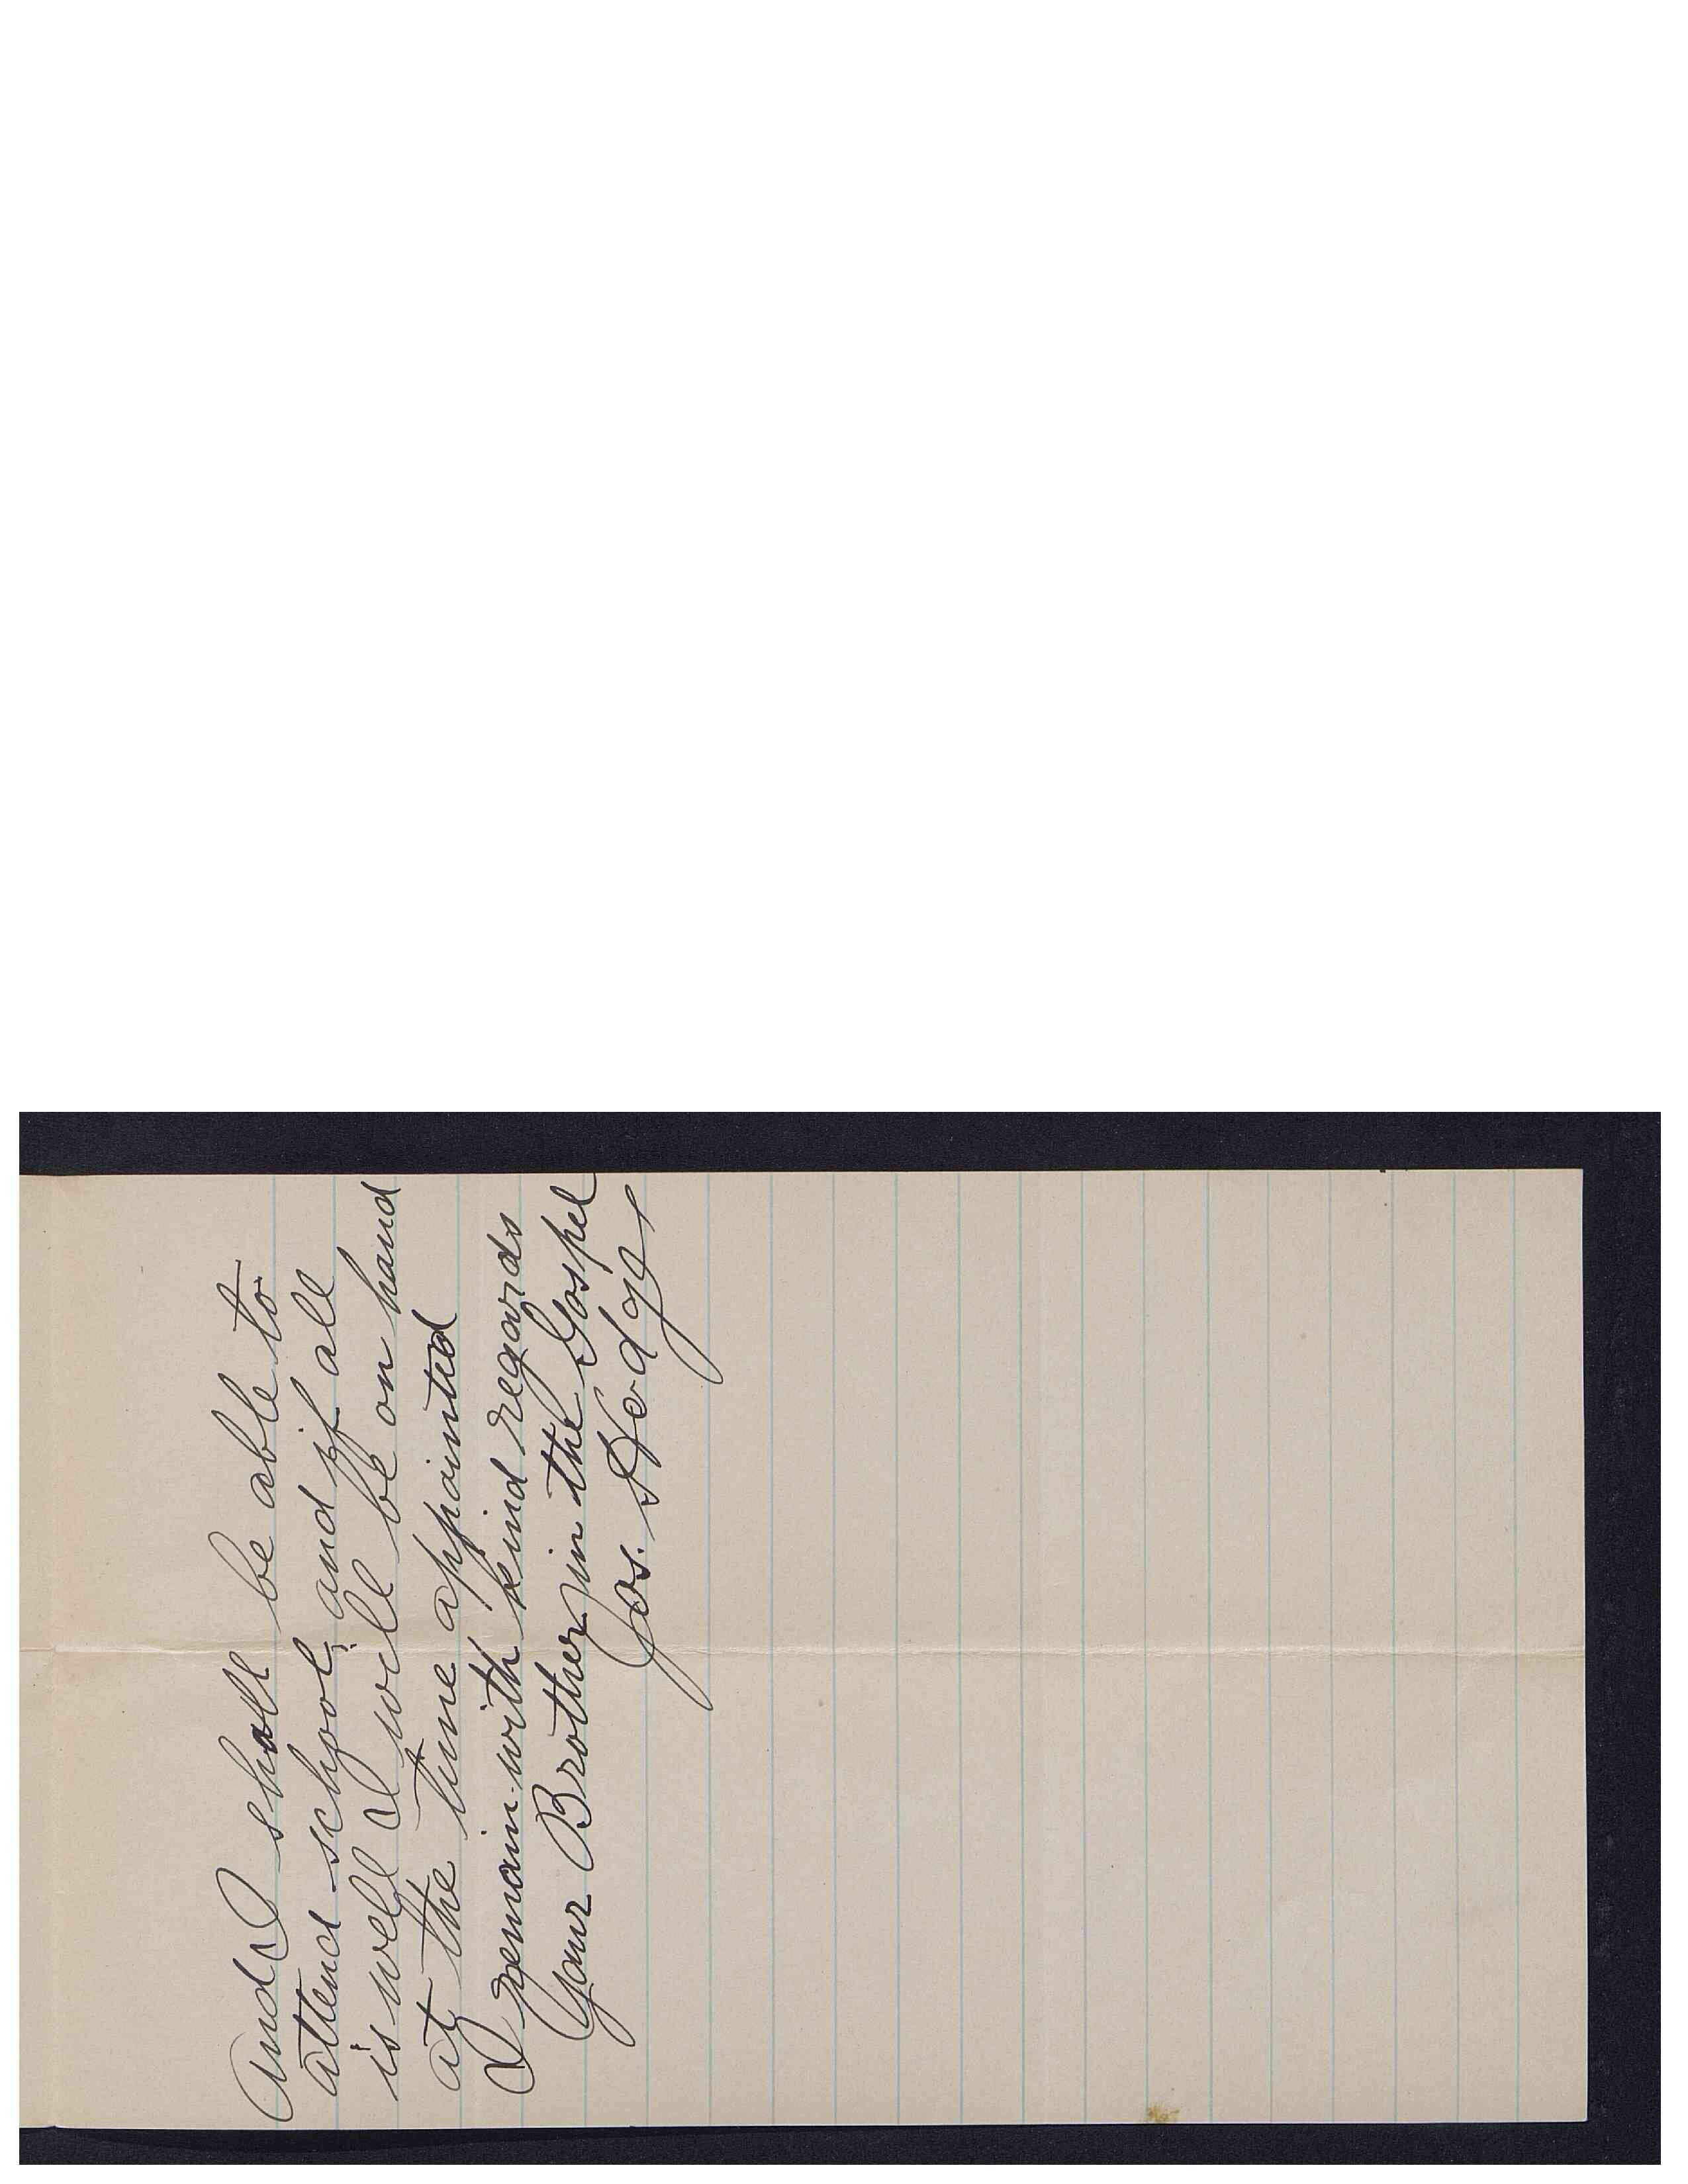 And I shall be able to
attend school, and if all
is well I will be on hand
at the time appointed
I remain with kind regards
Your Brother in the Gospel
Jos. Hodge